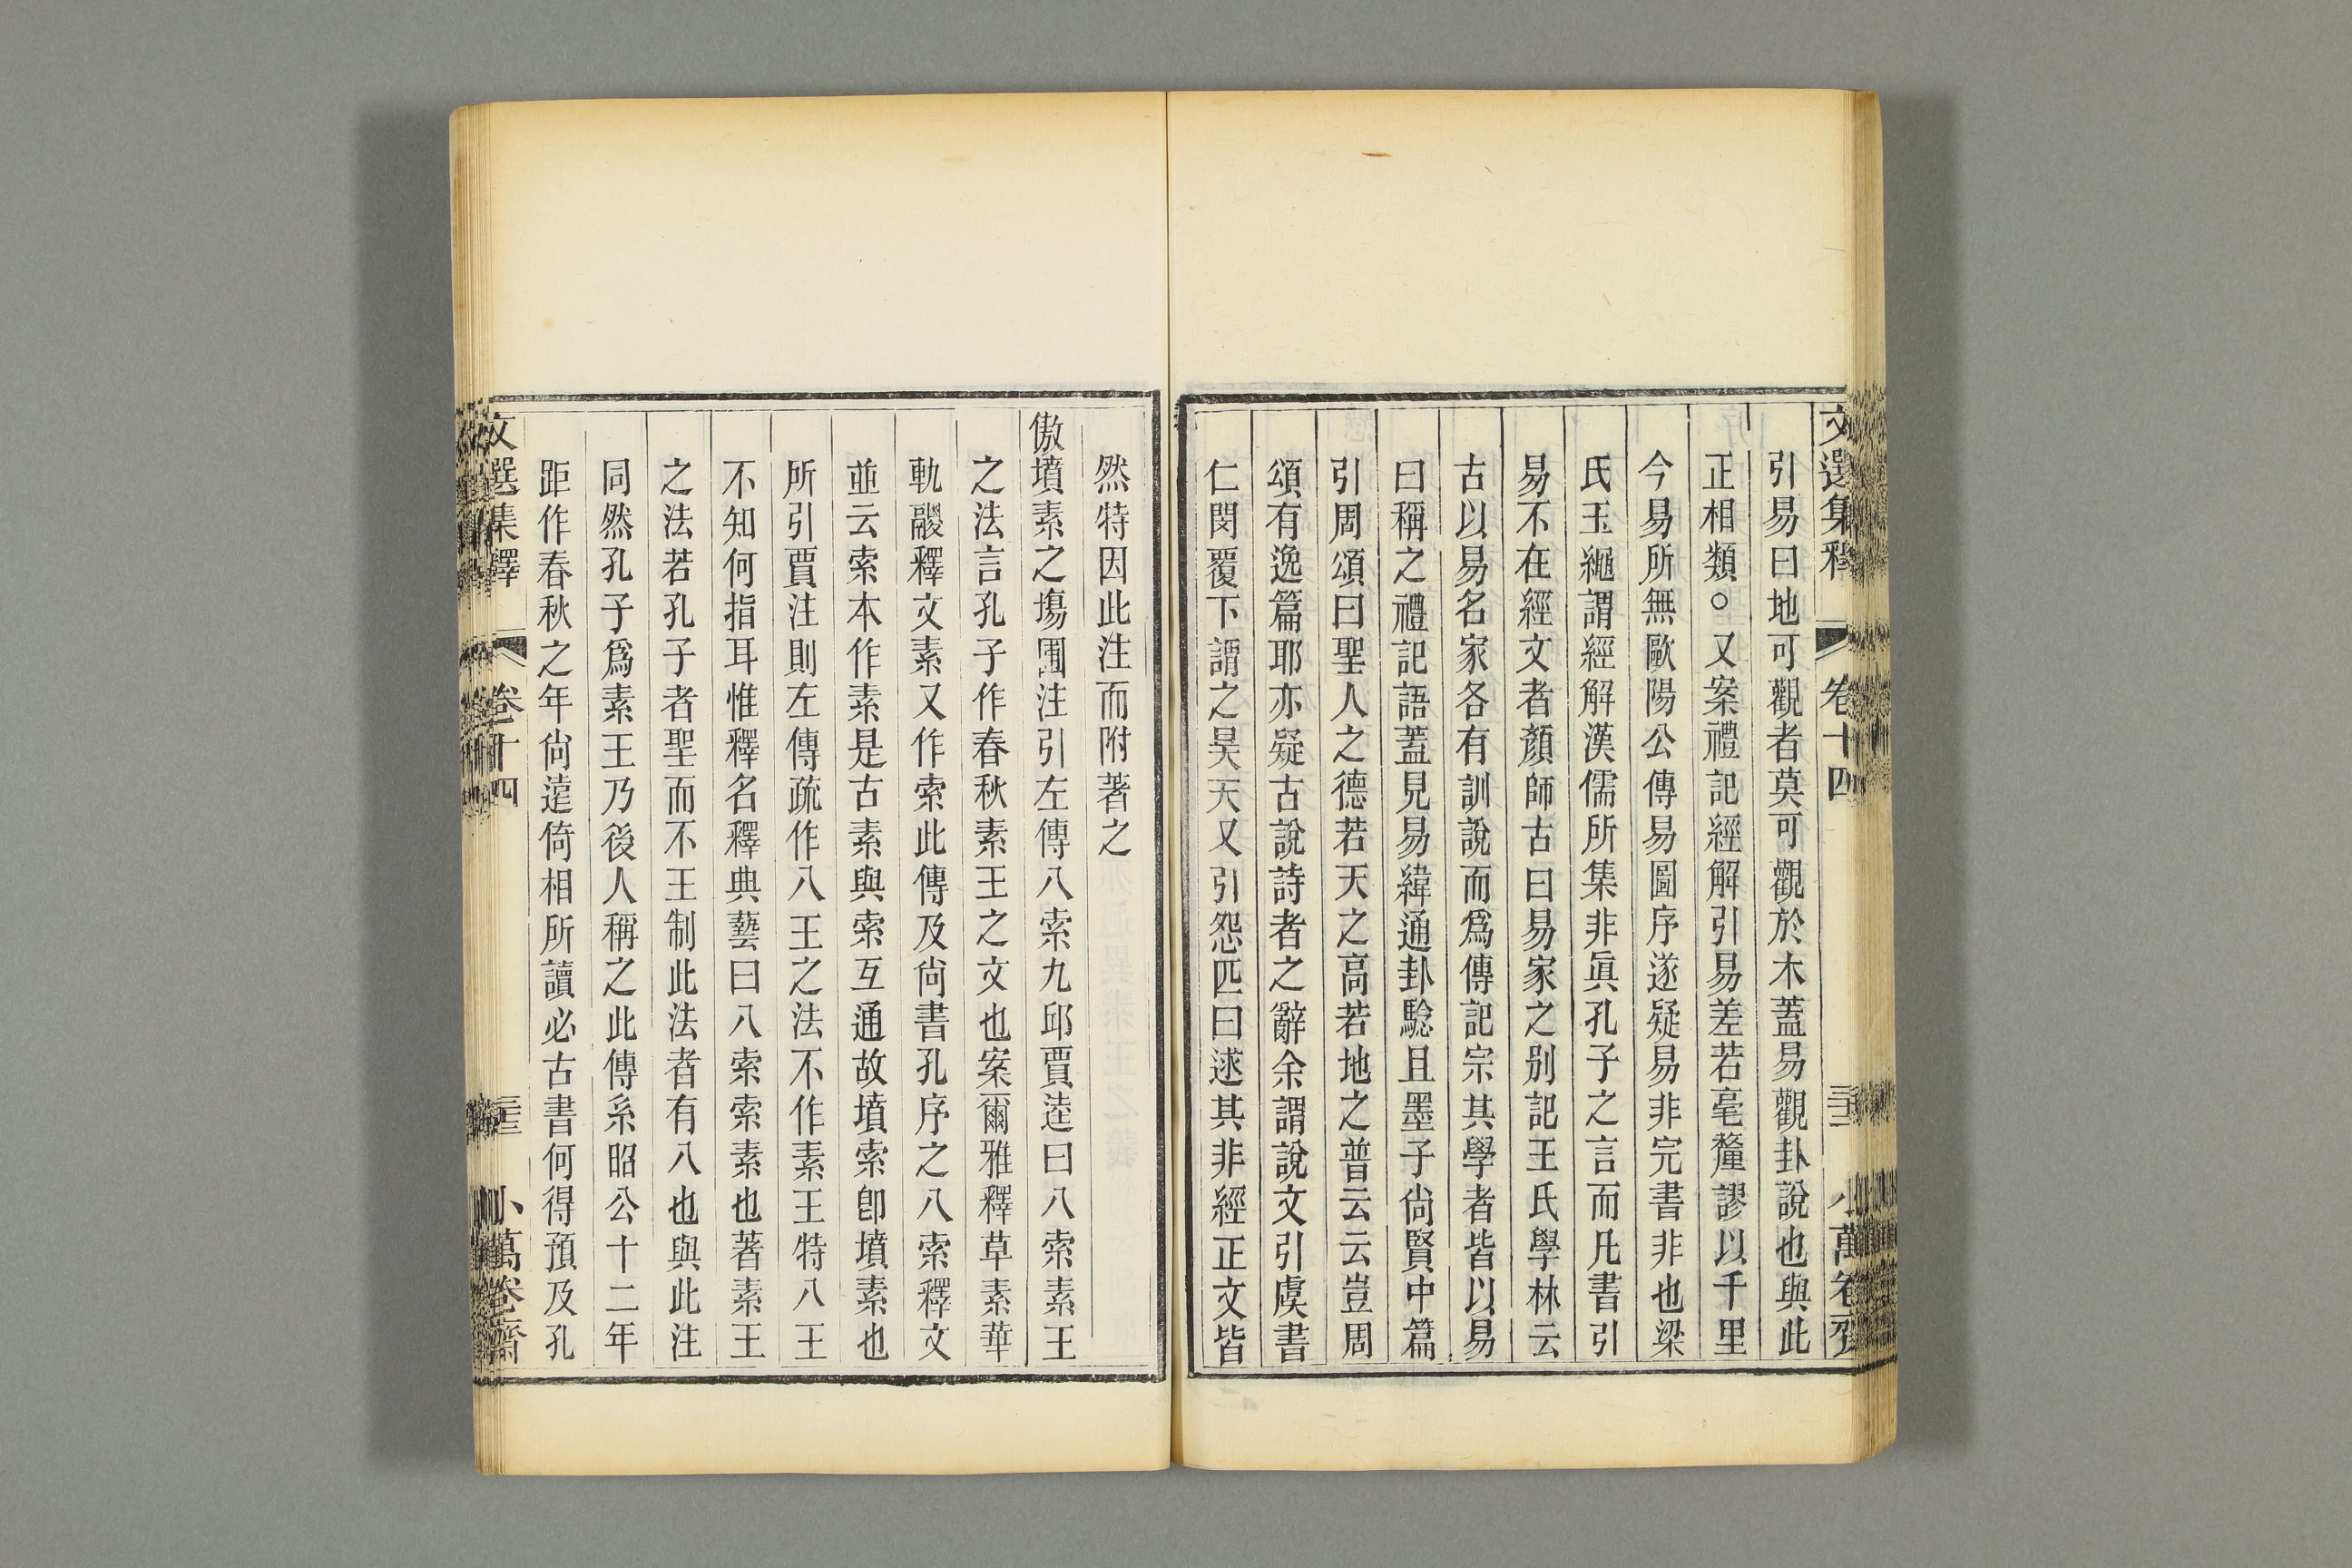 文選集釋 卷十四 小萬卷齋
引易曰地可觀者莫可觀於木蓋易觀卦說也與此
正相類○又案禮記經解引易差若毫釐謬以千里
今易所無歐陽公傳易圖序遂疑易非完書非也梁
氏玉繩謂經解漢儒所集非眞孔子之言而凡書引
易不在經文者顏師古曰易家之别記王氏學林云
古以易名家各有訓說而爲傳記宗其學者皆以易
曰稱之禮記語蓋見易緯通卦驗且墨子尙賢中篇
引周頌曰聖人之德若天之高若地之普云云豈周
頌有逸篇耶亦疑古說詩者之辭余謂說文引虞書
仁閔覆下謂之昊天又引怨匹曰逑其非經正文皆
然特因此注而附著之
傲墳素之塲圃注引左傳八索九邱賈逵曰八索素王
之法言孔子作春秋素王之文也案爾雅釋草素華
軌鬷釋文素又作索此傳及尙書孔序之八索釋文
並云索本作素是古素與索互通故墳索卽墳素也
所引賈注則左傳疏作八王之法不作素王特八王
不知何指耳惟釋名釋典藝曰八索索素也著素王
之法若孔子者聖而不王制此法者有八也與此注
同然孔子爲素王乃後人稱之此傳系昭公十二年
距作春秋之年尙遠倚相所讀必古書何得預及孔
文選集釋 卷十四 小萬卷齋